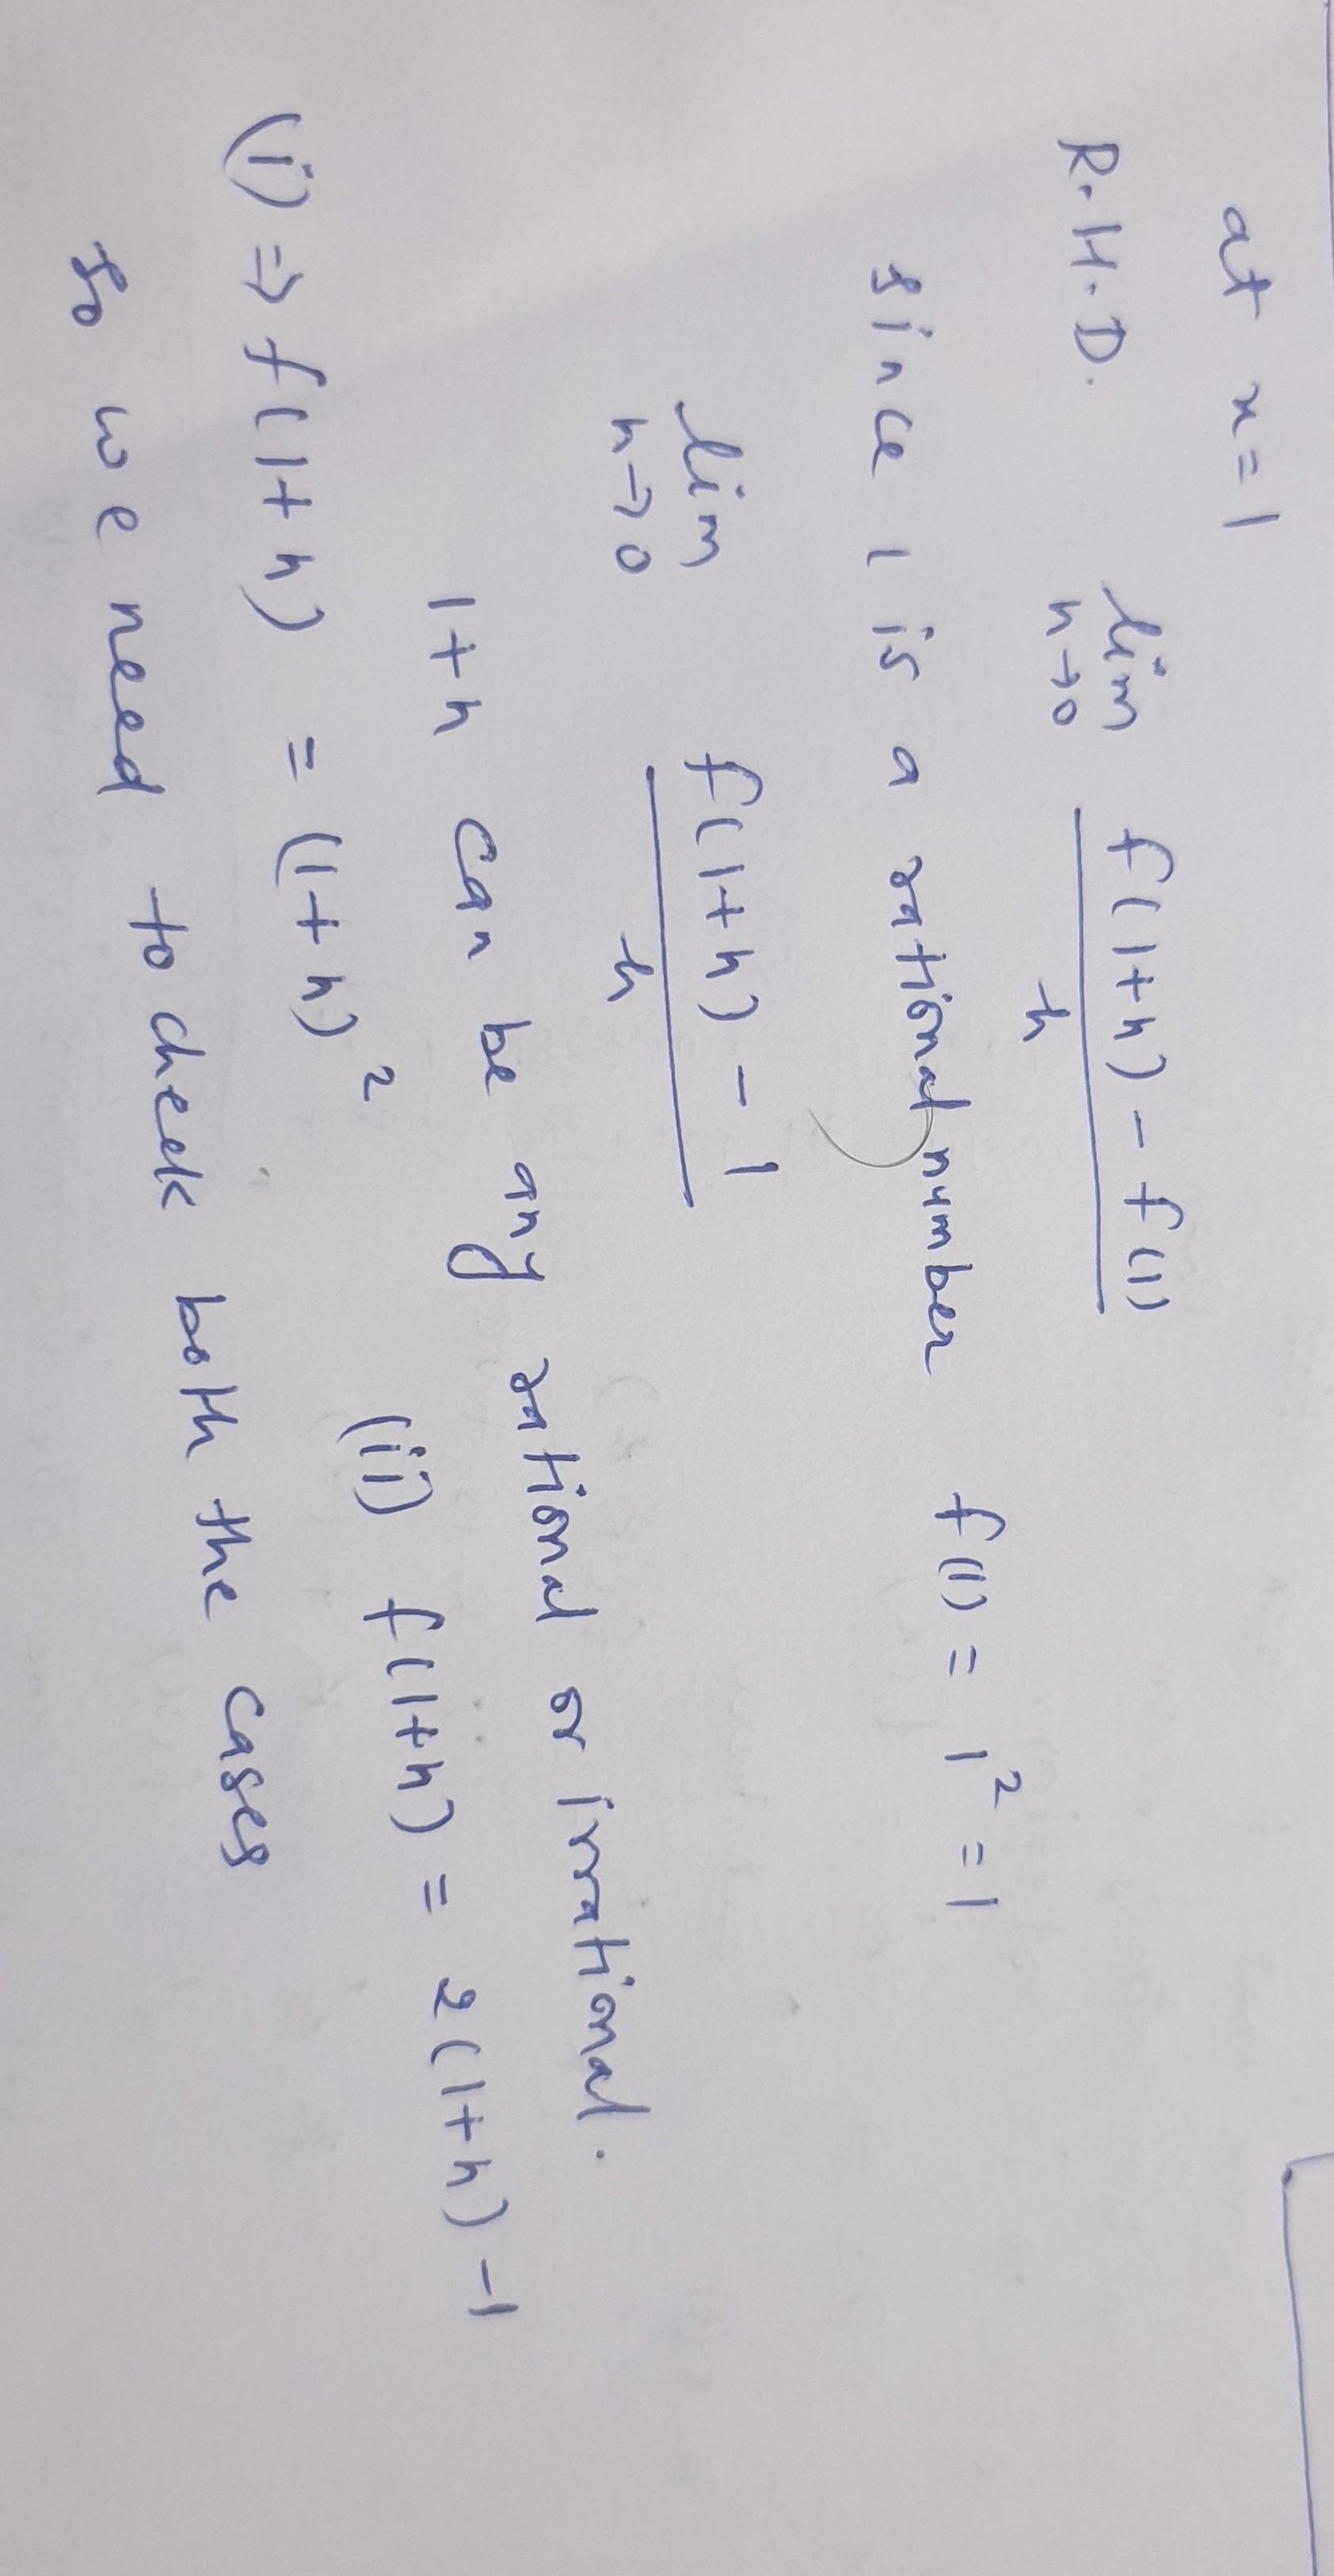 at x = 1
R.H.D. lim h→0 f(1+h) - f(1) / h
since 1 is a rational number f(1) = 1² = 1
lim h→0 f(1+h) - 1 / h
1+h can be any rational or irrational.
(i) ⇒ f(1+h) = (1+h)² (ii) f(1+h) = 2(1+h) -1
so we need to check both the cases